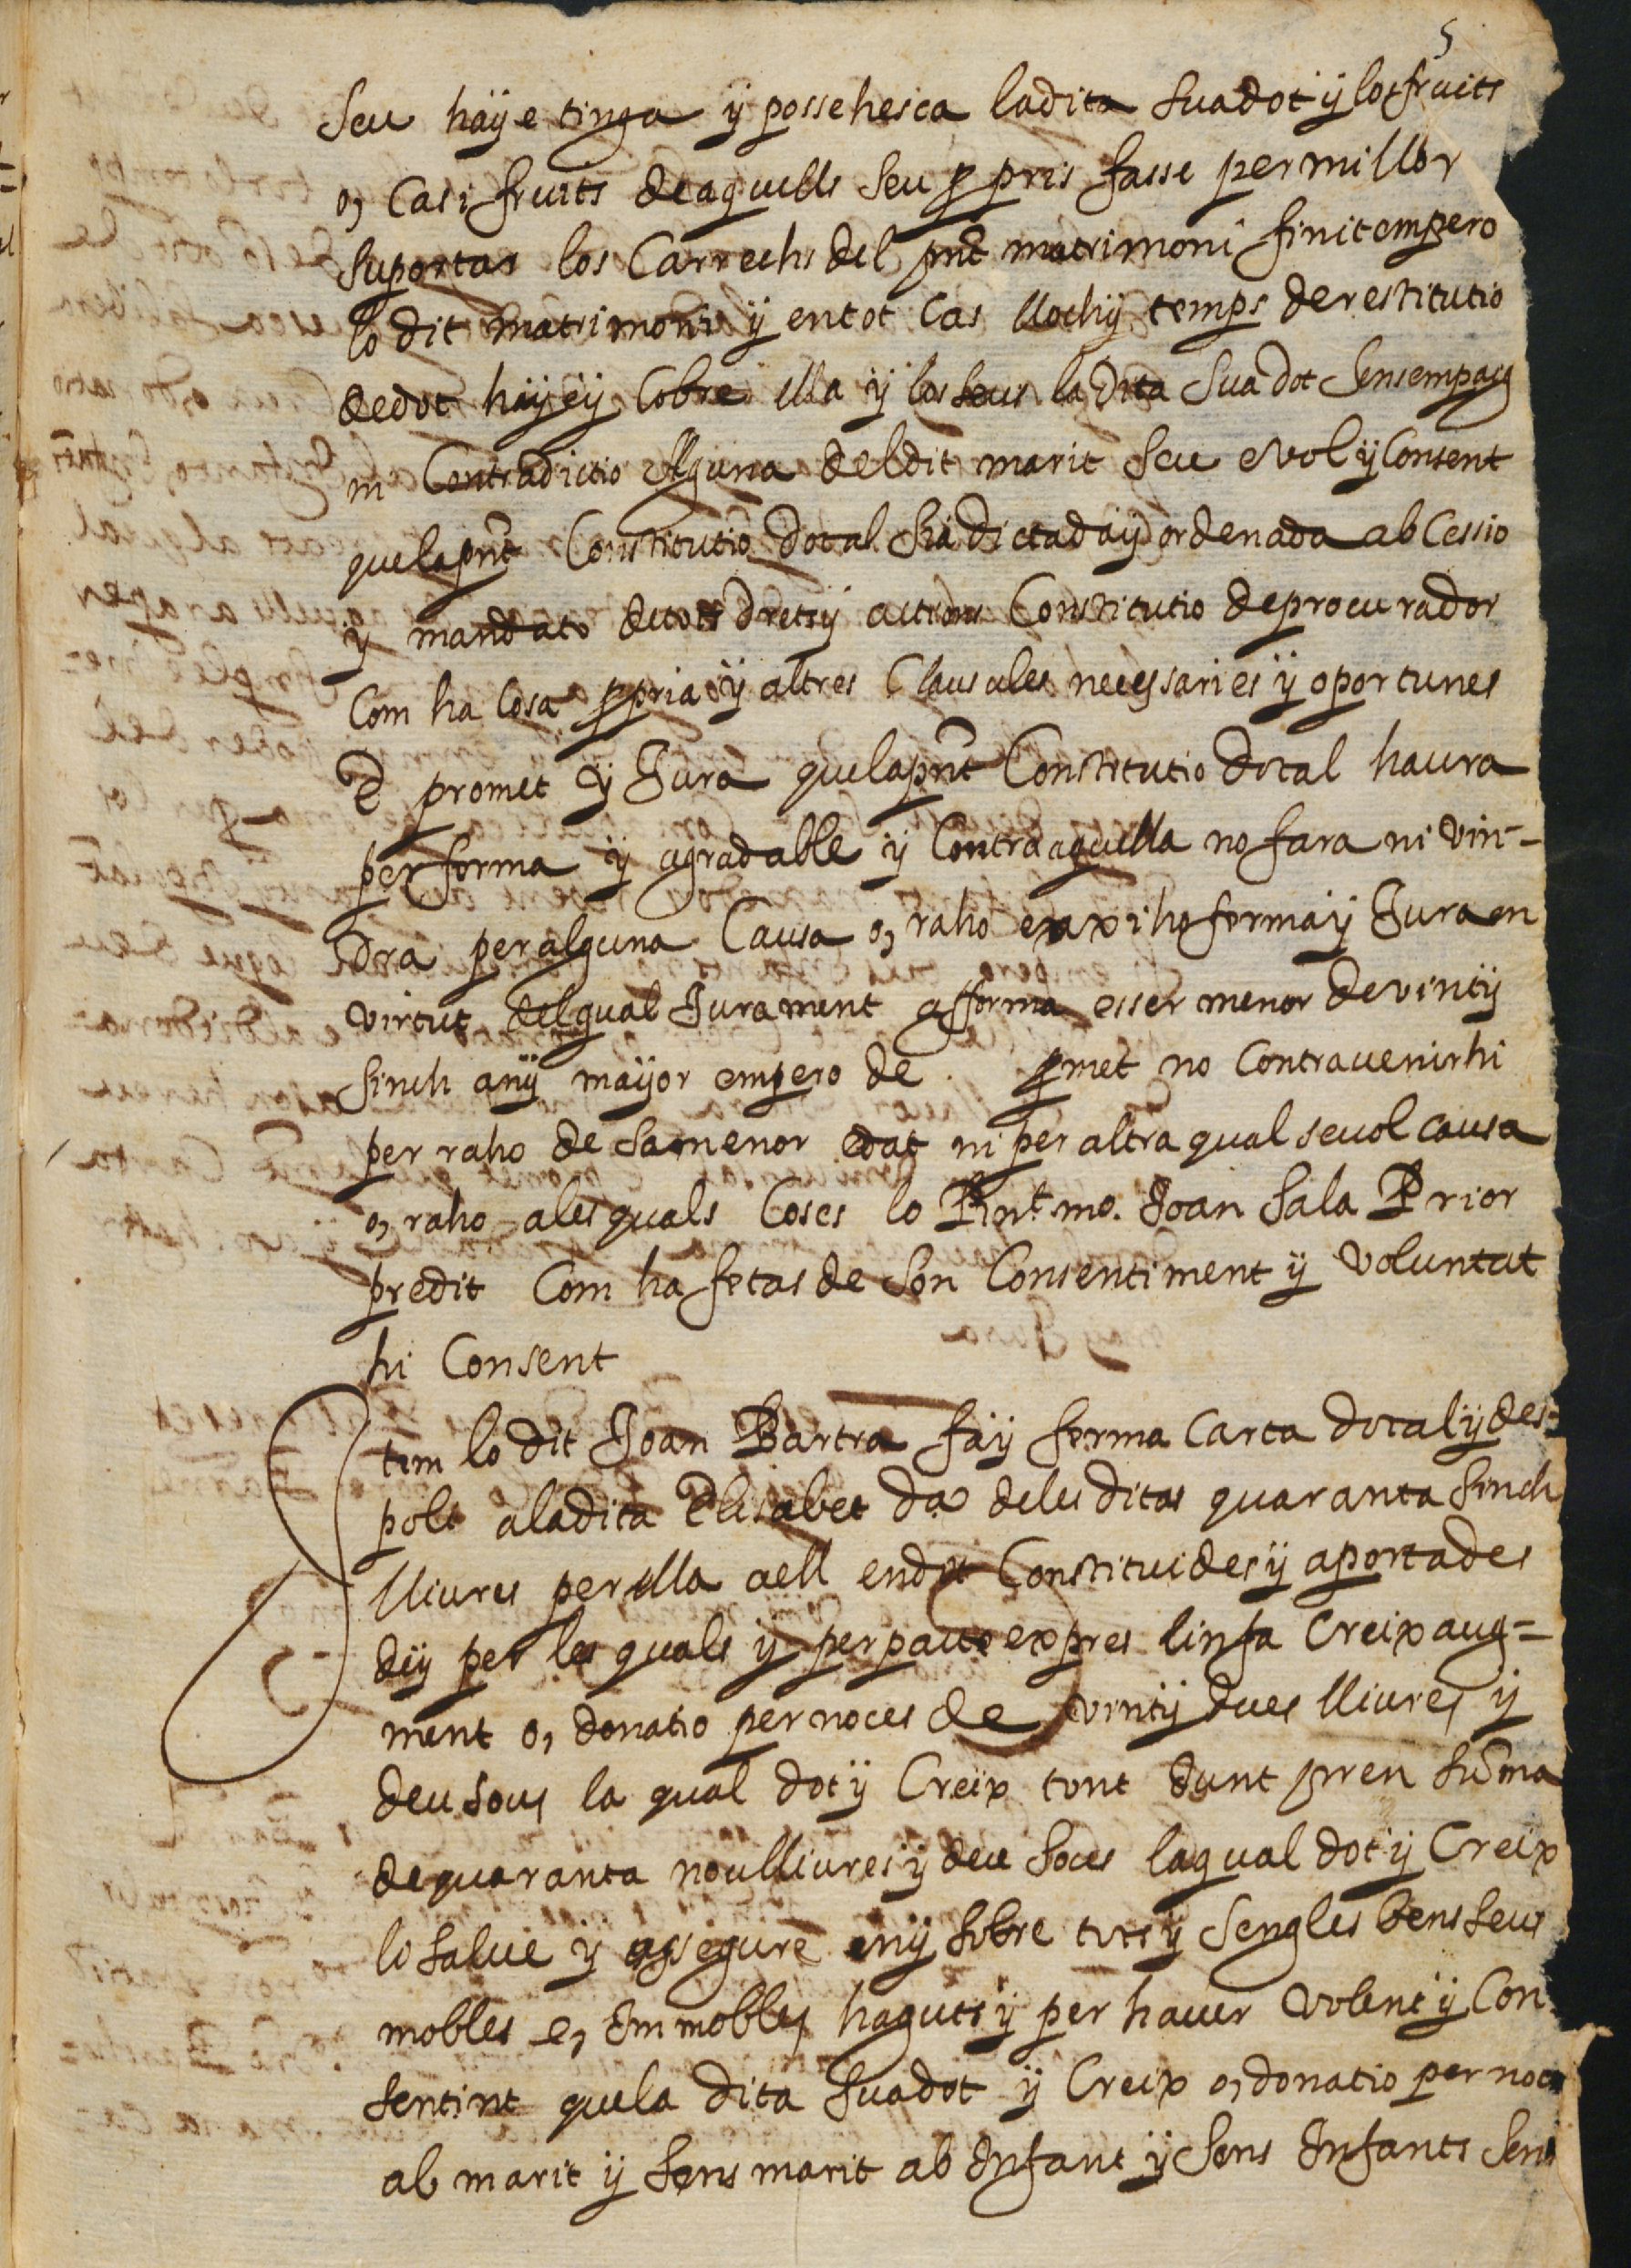 5
seu haÿe tinga ÿ possehesca ladita suadot ÿ los fruits
o, casi fruits deaquells seu ppris fasse permillor
suportar los Carrechs del pnt matrimoni finitempero
lo dit matrimoni ÿ entot Cas llochÿ temps derestitutio
dedot haÿeÿ Cobre ella ÿ los seus la dita sua dot Sensempaig
ni Contradictio alguna deldit marit seu evol ÿ Consent
quelapnt Constitutio dotal sia dictadaÿ ordenada ab Cessio
ÿ mandato detots dretsÿ actions Constitutio deprocurador
Com ha Cosa ppria ÿ altres Clausules necessaries ÿ oportunes
E promet ÿ Jura quelapnt Constitutio dotal haura
perferma ÿ agradable ÿ Contra aquella no fara ni vin-
dra peralguna Causa o, raho eaxiho fermaÿ Jura en
virtut delqual Jurament afferma esser menor devintÿ
sinch anÿ maÿor empero de pmet no Contravenirhi
per raho de samenor edat ni per altra qual sevol causa
o, raho ales quals Coses lo Joan Sala Prior
predit Com ha fetas de son Consentiment ÿ voluntat
hi Consent
Item lo dit Joan Bartra faÿ ferma Carta dotalÿ des-
polt aladita Elisabet da deles ditas quaranta sinch
lliures perella aell endot Constituidesÿ aportades
dÿ per les quals ÿ perpacte expres linfa Creix aug=
ment o, donatio pernoces de vintÿ dues lliures ÿ
deu sous la qual dotÿ Creix tont dunt pren suma
dequaranta noulliuresÿ deu sous laqual dotÿ Creix
lo salve ÿ assegure enÿ sobre totsÿ sengles bens seus
mobles e, Immobles hagutsÿ per haver volentÿ Con
sentint quela dita suadot ÿ Creix o, donatio per noces
ab marit ÿ sens marit ab Infant ÿ sens Infants sens